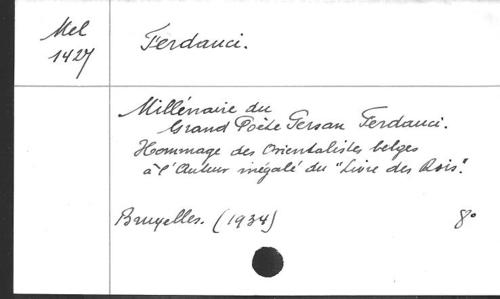 Mel
1427
Ferdauci.
Millénaire du
Grand Poète Persan Ferdauci.
Hommage des Orientalistes belges
à l'Auteur inégalé du "Livre des Rois".
Bruxelles. (1934) 8°